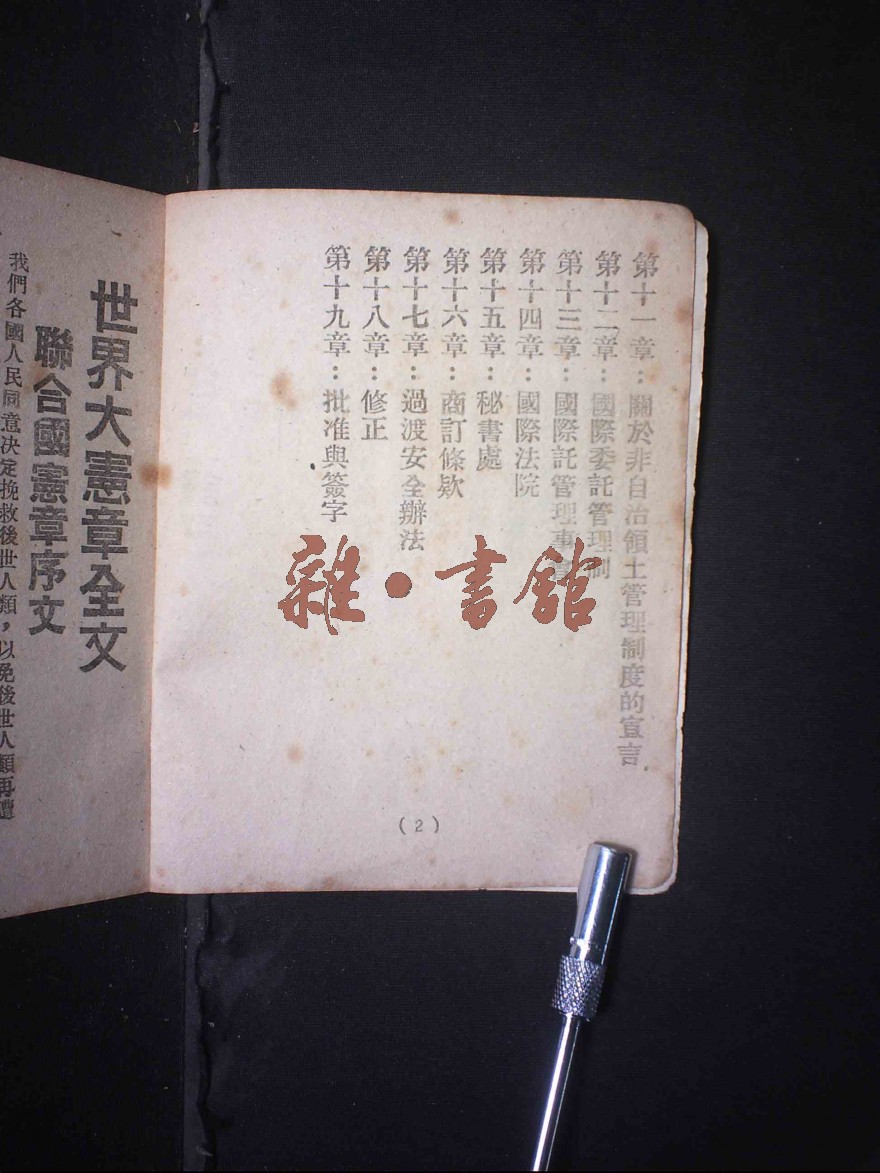 第十一章：關於非自治領土管理制度的宣言
第十二章：國際委託管理制
第十三章：國際託管理事
第十四章：國際法院
第十五章：秘書處
第十六章：商訂條欵
第十七章：過渡安全辦法
第十八章：修正
第十九章：批准與簽字
(2)
雜·書館
世界大憲章全文
聯合國憲章序文
我們各國人民同意決定挽救後世人類，以免後世人類再遭